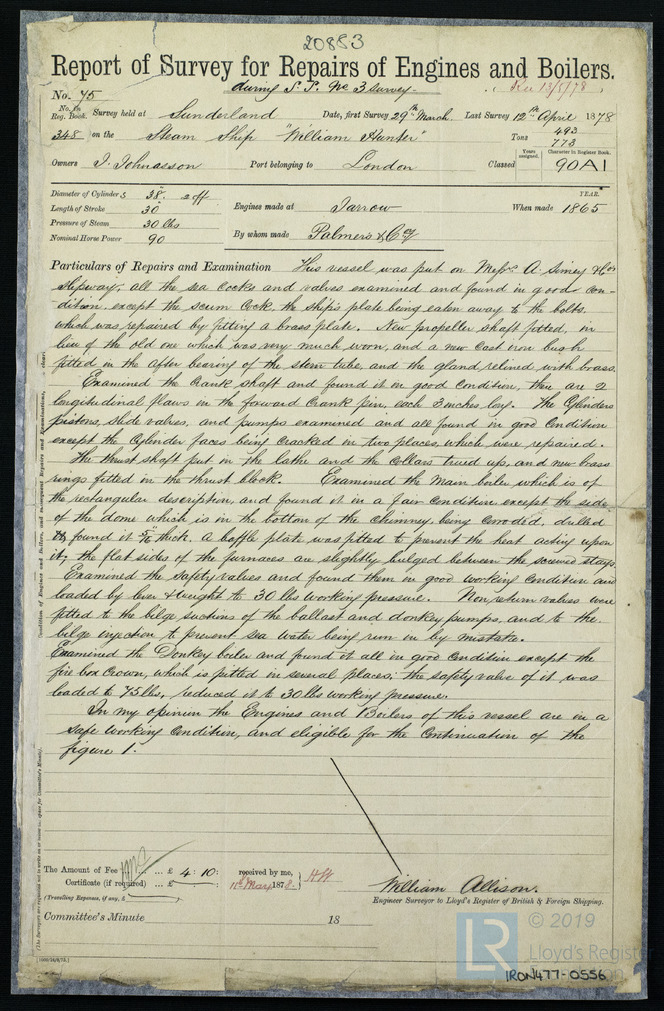 20883
Report of Survey for Repairs of Engines and Boilers.
during S. P. No 3 survey
No. 75
No. in Reg. Book. Survey held at Sunderland Date, first Survey 29th March. Last Survey 12th April 1878
348 on the Steam Ship "William Hunter" Tons 493
773
Owners J. Johnasson Port belonging to London Classed Years assigned. Character in Register Book. 90A1
Diameter of Cylinders 38" 2 off
Length of Stroke 30
Pressure of Steam 30 lbs
Nominal Horse Power 90
Engines made at Jarrow When made YEAR. 1865
By whom made Palmers & Coy
Particulars of Repairs and Examination This vessel was put on Messrs. A. Simey & Cos
slipway, all the sea cocks and valves examined and found in good con-
dition, except the scum cock, the ship's plate being eaten away to the bolts,
which was repaired by fitting a brass plate. New propeller shaft fitted, in
lieu of the old one which was very much worn, and a new cast iron bush
fitted in the after bearing of the stern tube, and the gland relined with brass.
Examined the crank shaft and found it in good condition, there are 2
longitudinal flaws in the forward crank pin, each 3 inches long. The Cylinders
pistons, slide valves, and pumps examined and all found in good condition
except the cylinder faces being cracked in two places, which were repaired.
The thrust shaft put in the lathe and the collars trued up, and new brass
rings fitted in the thrust block. Examined the main boiler which is of
the rectangular description, and found it in a fair condition except the side
of the dome which is in the bottom of the chimney being corroded, drilled
found it thick. A baffle plate was fitted to prevent the heat acting upon
it, the flat sides of the furnaces are slightly bulged between the screwed stays.
Examined the safety valves and found them in good working condition and
loaded by lever & weight to 30 lbs working pressure. Non return valves were
fitted to the bilge suctions of the ballast and donkey pumps, and to the
bilge injection to prevent sea water being run in by mistake.
Examined the Donkey boiler and found it all in good condition except the
fire box crown, which is pitted in several places; the safety valve of it was
loaded to 75 lbs, reduced it to 30 lbs working pressure.
In my opinion the Engines and Boilers of this vessel are in a
safe working condition, and eligible for the continuation of the
figure 1.
The Amount of Fee ... £ 4 : 10 : received by me,
Certificate (if required) ... £ 11th May 1878.
(Travelling Expenses, if any, £
William Allison.
Engineer Surveyor to Lloyd's Register of British & Foreign Shipping.
Committee's Minute 18
© 2019
LR
Lloyd's Register
IRON477-0556